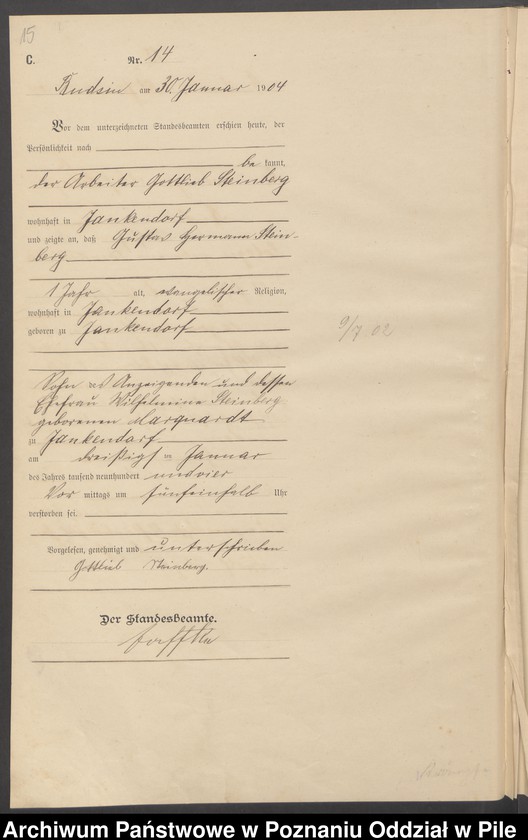 15
C. Nr. 14
am 30. Januar 1904
Vor dem unterzeichneten Standesbeamten erschien heute, der
Persönlichkeit nach
be kannt,
der Arbeiter Gottlieb Steinberg
wohnhaft in Jankendorf
und zeigte an, daß Gustav Hermann Stein-
berg
1 Jahr alt, evangelischer Religion,
wohnhaft in Jankendorf
geboren zu Jankendorf
9/7 02
Sohn des Anzeigenden und dessen
Ehefrau Wilhelmine Steinberg
geborenen Marquardt
zu Jankendorf
am dreißigsten Januar
des Jahres tausend neunhundert und vier
Vor mittags um fünfeinhalb Uhr
verstorben sei.
Vorgelesen, genehmigt und unterschrieben
Gottlieb Steinberg.
Der Standesbeamte.
Archiwum Państwowe w Poznaniu Oddział w Pile